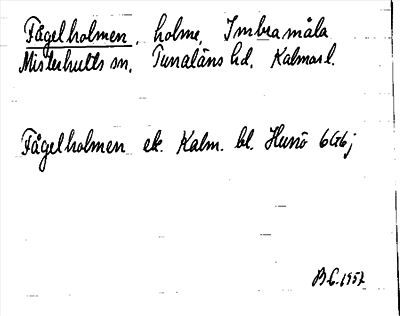 Fågelholmen, holme, Imbramåla
Misterhults sn, Tunaläns hd. Kalmar l.
Fågelholmen ek. Kalm. bl. Hunö 6G6j
B.C. 1957